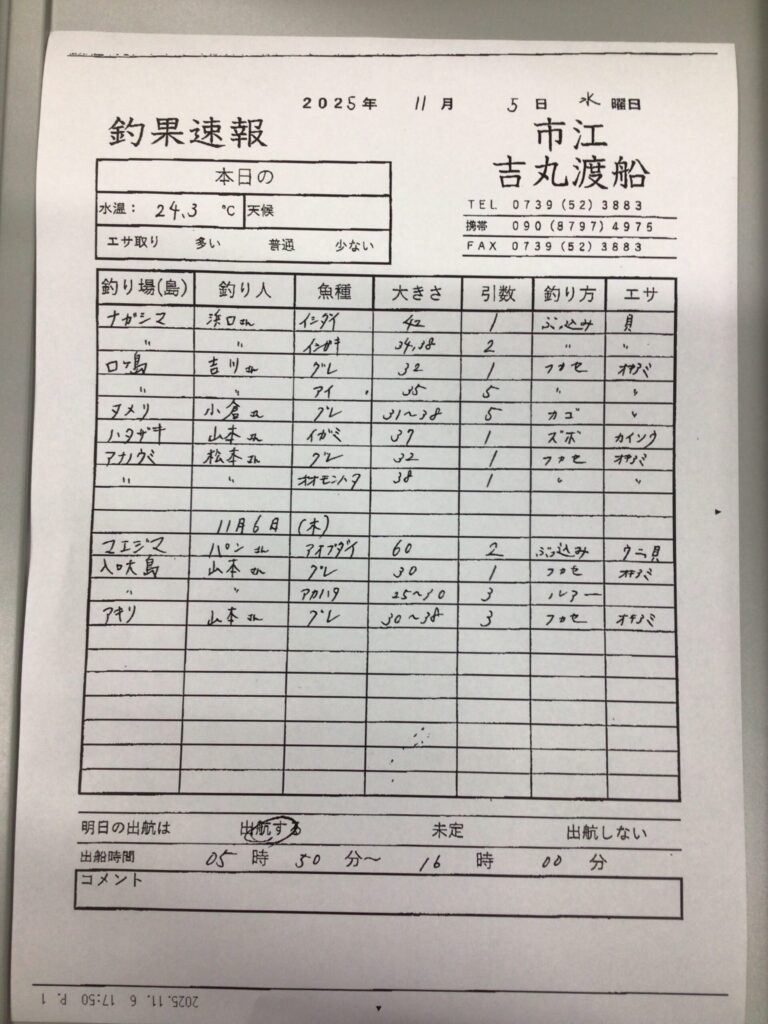 2025年 11月 5日 水曜日
釣果速報
市江
吉丸渡船
本日の
水温： 24.3 ℃ 天候
エサ取り 多い 普通 少ない
TEL 0739（52）3883
携帯 090（8797）4975
FAX 0739（52）3883
釣り場(島) 釣り人 魚種 大きさ 引数 釣り方 エサ
ナガシマ 浜口さん イシダイ 42 1 ぶっ込み 貝
〃 〃 イサギ 34,38 2 〃 〃
口ヶ島 吉川さん グレ 32 1 フカセ オキアミ
〃 〃 アイ 35 5 〃 〃
タメリ 小倉さん グレ 31～38 5 カゴ 〃
ハタザキ 山本さん イガミ 37 1 ズボ カイソウ
アナノウミ 松本さん グレ 32 1 フカセ オキアミ
〃 〃 オオモンハタ 38 1 〃 〃
11月6日 (木)
マエジマ パンさん アオブダイ 60 2 ぶっ込み ウニ貝
山本さん グレ 30 1 フカセ オキアミ
〃 〃 アカハタ 25～30 3 ルアー
アキリ 山本さん グレ 30～38 3 フカセ オキアミ
明日の出航は 出航する 未定 出航しない
出船時間 05時 50分～ 16時 00分
コメント
2025.11. 6 17:50 P. 1